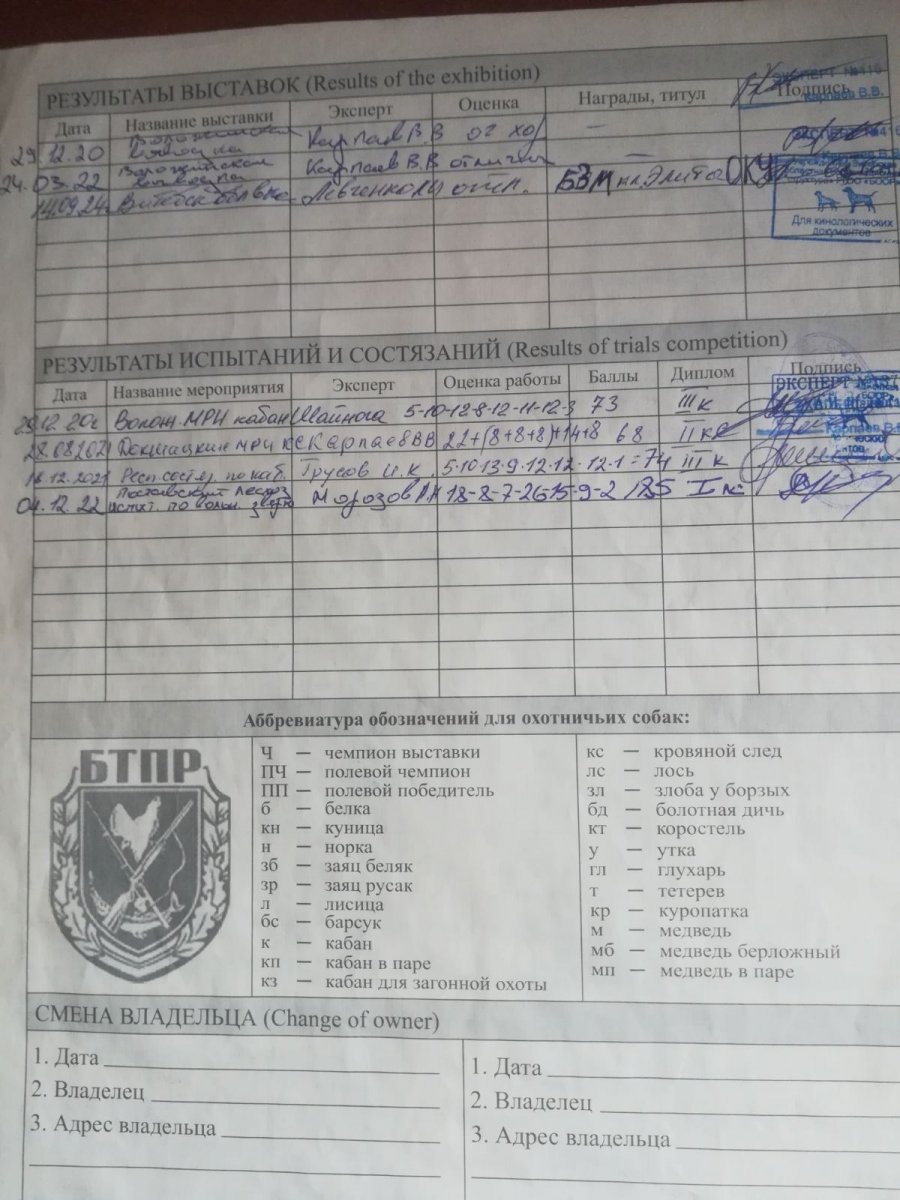 РЕЗУЛЬТАТЫ ВЫСТАВОК (Results of the exhibition)
Дата Название выставки Эксперт Оценка Награды, титул Подпись
ЭКСПЕРТ №416
Карпаев В.В.
29.12.20 выводка Карпаев В.В оч хор —
24.03.22 выводка Карпаев В.В отличн —
14.09.24 отл. БЗМ кл. Элита
Для кинологических
документов
РЕЗУЛЬТАТЫ ИСПЫТАНИЙ И СОСТЯЗАНИЙ (Results of trials competition)
Дата Название мероприятия Эксперт Оценка работы Баллы Диплом Подпись
ЭКСПЕРТ
Волож МРИ кабан 5-10-12-8-12-11-12-3 73 III к
28.08.2021 Докшицкие МРИ КС Карпаев ВВ 22+(8+8+8)+14+8 68 II кс
Карпаев В.В.
Респ. сост. по каб. Трусов И.К. 5-10-13-9-12-12-12-1=74 III к
04.12.22 испыт. по вольн. зверю Морозов
Аббревиатура обозначений для охотничьих собак:
БТПР
Ч — чемпион выставки
ПЧ — полевой чемпион
ПП — полевой победитель
б — белка
кн — куница
н — норка
зб — заяц беляк
зр — заяц русак
л — лисица
бс — барсук
к — кабан
кп — кабан в паре
кз — кабан для загонной охоты
кс — кровяной след
лс — лось
зл — злоба у борзых
бд — болотная дичь
кт — коростель
у — утка
гл — глухарь
т — тетерев
кр — куропатка
м — медведь
мб — медведь берложный
мп — медведь в паре
СМЕНА ВЛАДЕЛЬЦА (Change of owner)
1. Дата
2. Владелец
3. Адрес владельца
1. Дата
2. Владелец
3. Адрес владельца